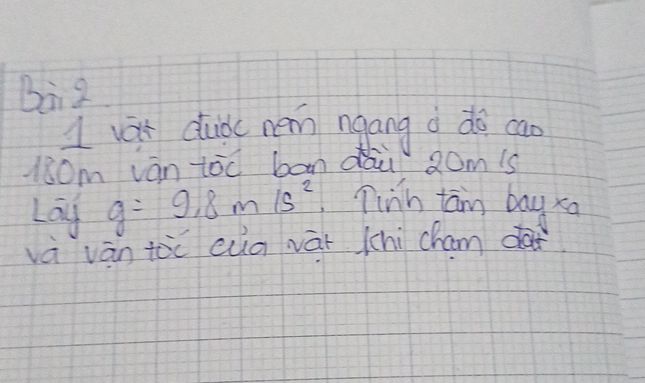 Bài 2
1 vật được ném ngang ở độ cao
180m vận tốc ban đầu 20m/s
Lấy g = 9,8 m/s². Tính tầm bay xa
và vận tốc của vật khi chạm đất.